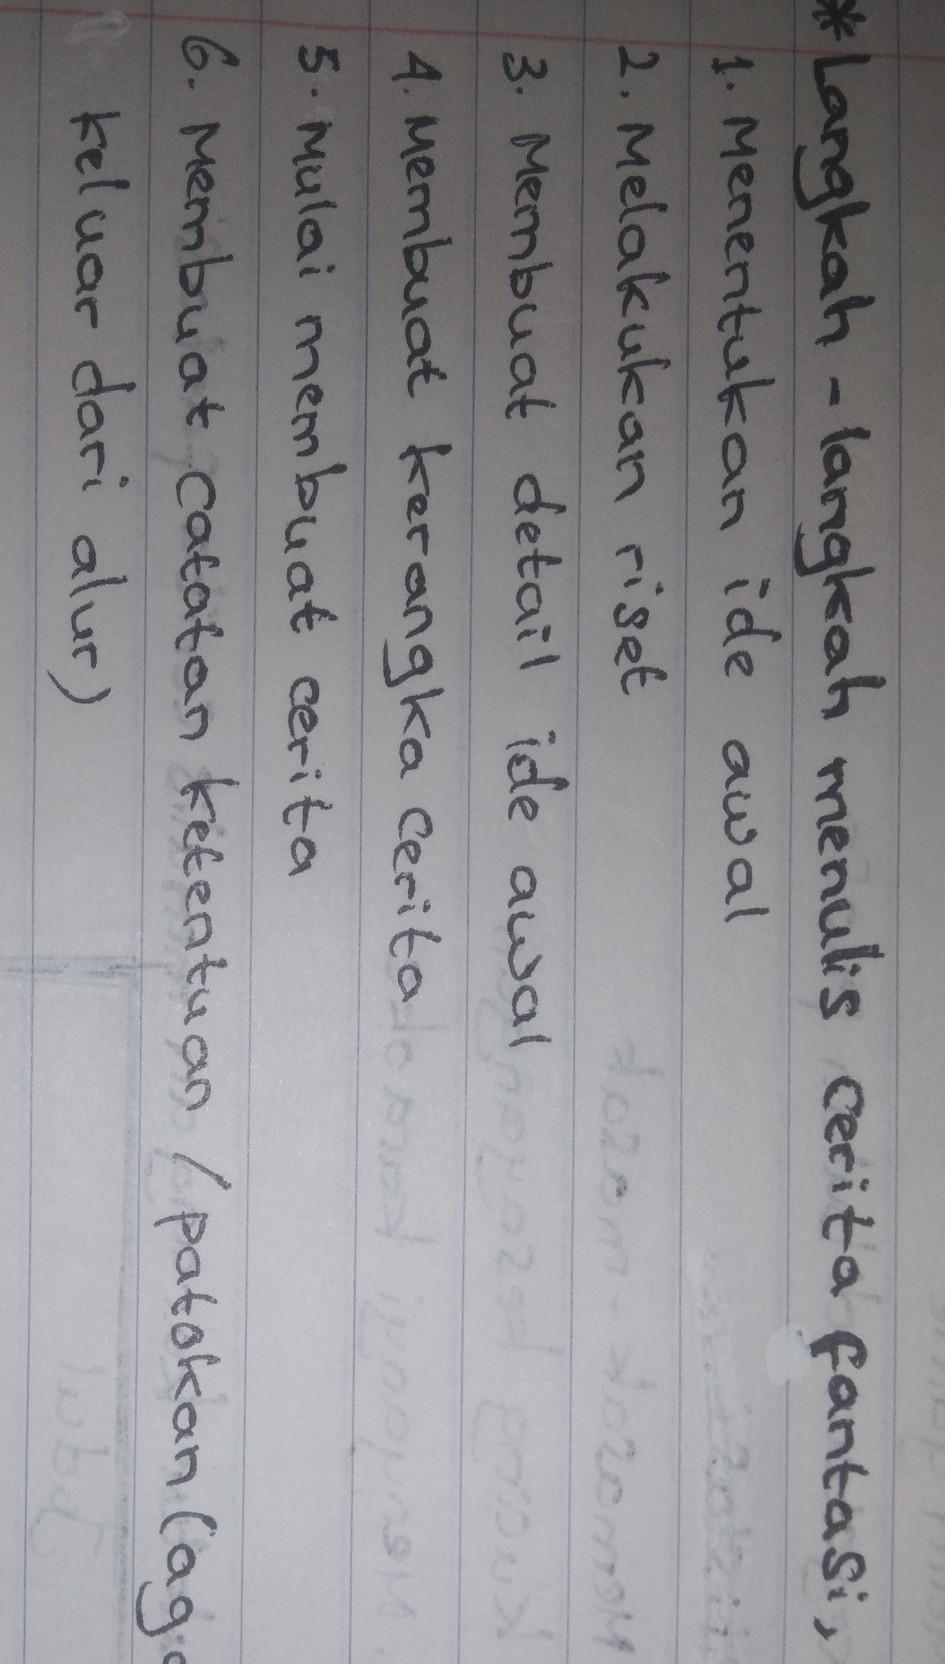 * Langkah-langkah menulis cerita fantasi,
1. Menentukan ide awal
2. Melakukan riset
3. Membuat detail ide awal
4. Membuat kerangka cerita
5. Mulai membuat cerita
6. Membuat catatan ketentuan/patokan (ag
keluar dari alur)